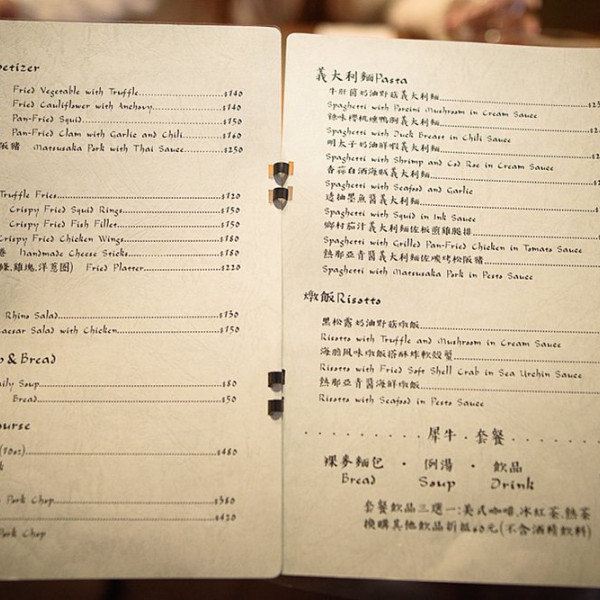 petizer
Fried Vegetable with Truffle $140
Fried Cauliflower with Anchovy $140
Pan-Fried Squid $150
Pan-Fried Clam with Garlic and Chili $160
阪豬 Matsusaka Pork with Thai Sauce $250
Truffle Fries $120
Crispy Fried Squid Rings $150
Crispy Fried Fish Fillet $150
Crispy Fried Chicken Wings $180
捲 Handmade Cheese Sticks $180
條,雞塊,洋蔥圈) Fried Platter $220
Rhino Salad $130
Caesar Salad with Chicken $150
& Bread
Daily Soup $80
Bread $50
ourse
(10oz) $480
Pork Chop $380
$420
Pork Chop
義大利麵Pasta
牛肝菌奶油野菇義大利麵
Spaghetti with Porcini Mushroom in Cream Sauce
辣味櫻桃燻鴨胸義大利麵
Spaghetti with Duck Breast in Chili Sauce
明太子奶油鮮蝦義大利麵
Spaghetti with Shrimp and Cod Roe in Cream Sauce
香蒜白酒海鮮義大利麵
Spaghetti with Seafood and Garlic
透抽墨魚醬義大利麵
Spaghetti with Squid in Ink Sauce
鄉村茄汁義大利麵佐板煎雞腿排
Spaghetti with Grilled Pan-Fried Chicken in Tomato Sauce
熱那亞青醬義大利麵佐碳烤松阪豬
Spaghetti with Matsusaka Pork in Pesto Sauce
燉飯Risotto
黑松露奶油野菇燉飯
Risotto with Truffle and Mushroom in Cream Sauce
海膽風味燉飯搭酥炸軟殼蟹
Risotto with Fried Soft Shell Crab in Sea Urchin Sauce
熱那亞青醬海鮮燉飯
Risotto with Seafood in Pesto Sauce
犀牛·套餐
裸麥麵包 · 例湯 · 飲品
Bread Soup Drink
套餐飲品三選一:美式咖啡.冰紅茶.熱茶
換購其他飲品折抵60元(不含酒精飲料)